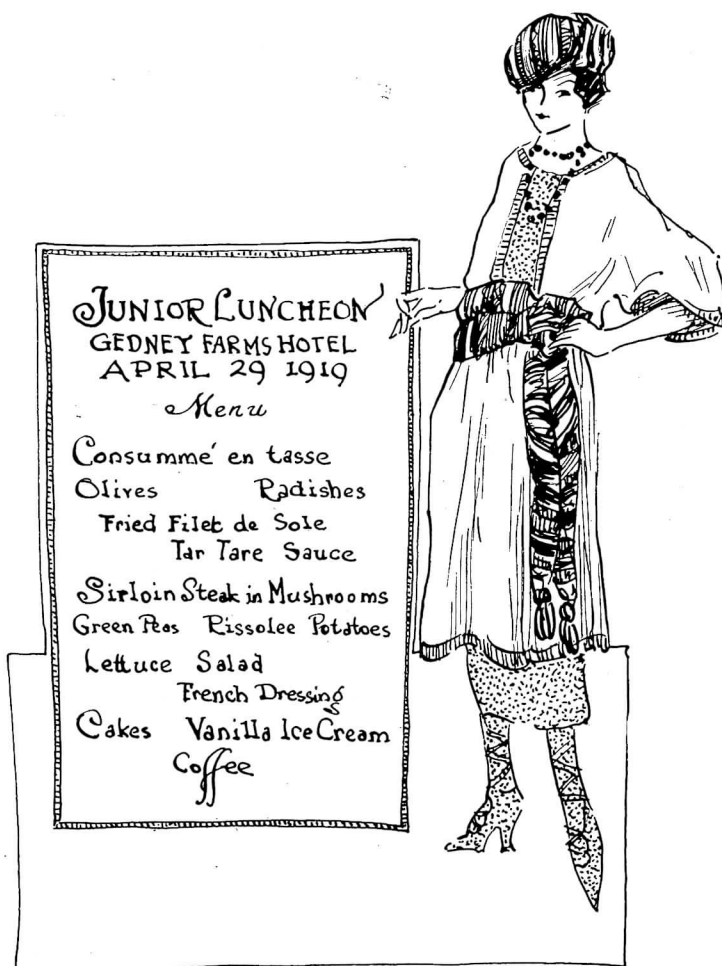 JUNIOR LUNCHEON
GEDNEY FARMS HOTEL
APRIL 29 1919
Menu
Consummé en tasse
Olives Radishes
Fried Filet de Sole
Tar Tare Sauce
Sirloin Steak in Mushrooms
Green Peas Rissolee Potatoes
Lettuce Salad
French Dressing
Cakes Vanilla Ice Cream
Coffee